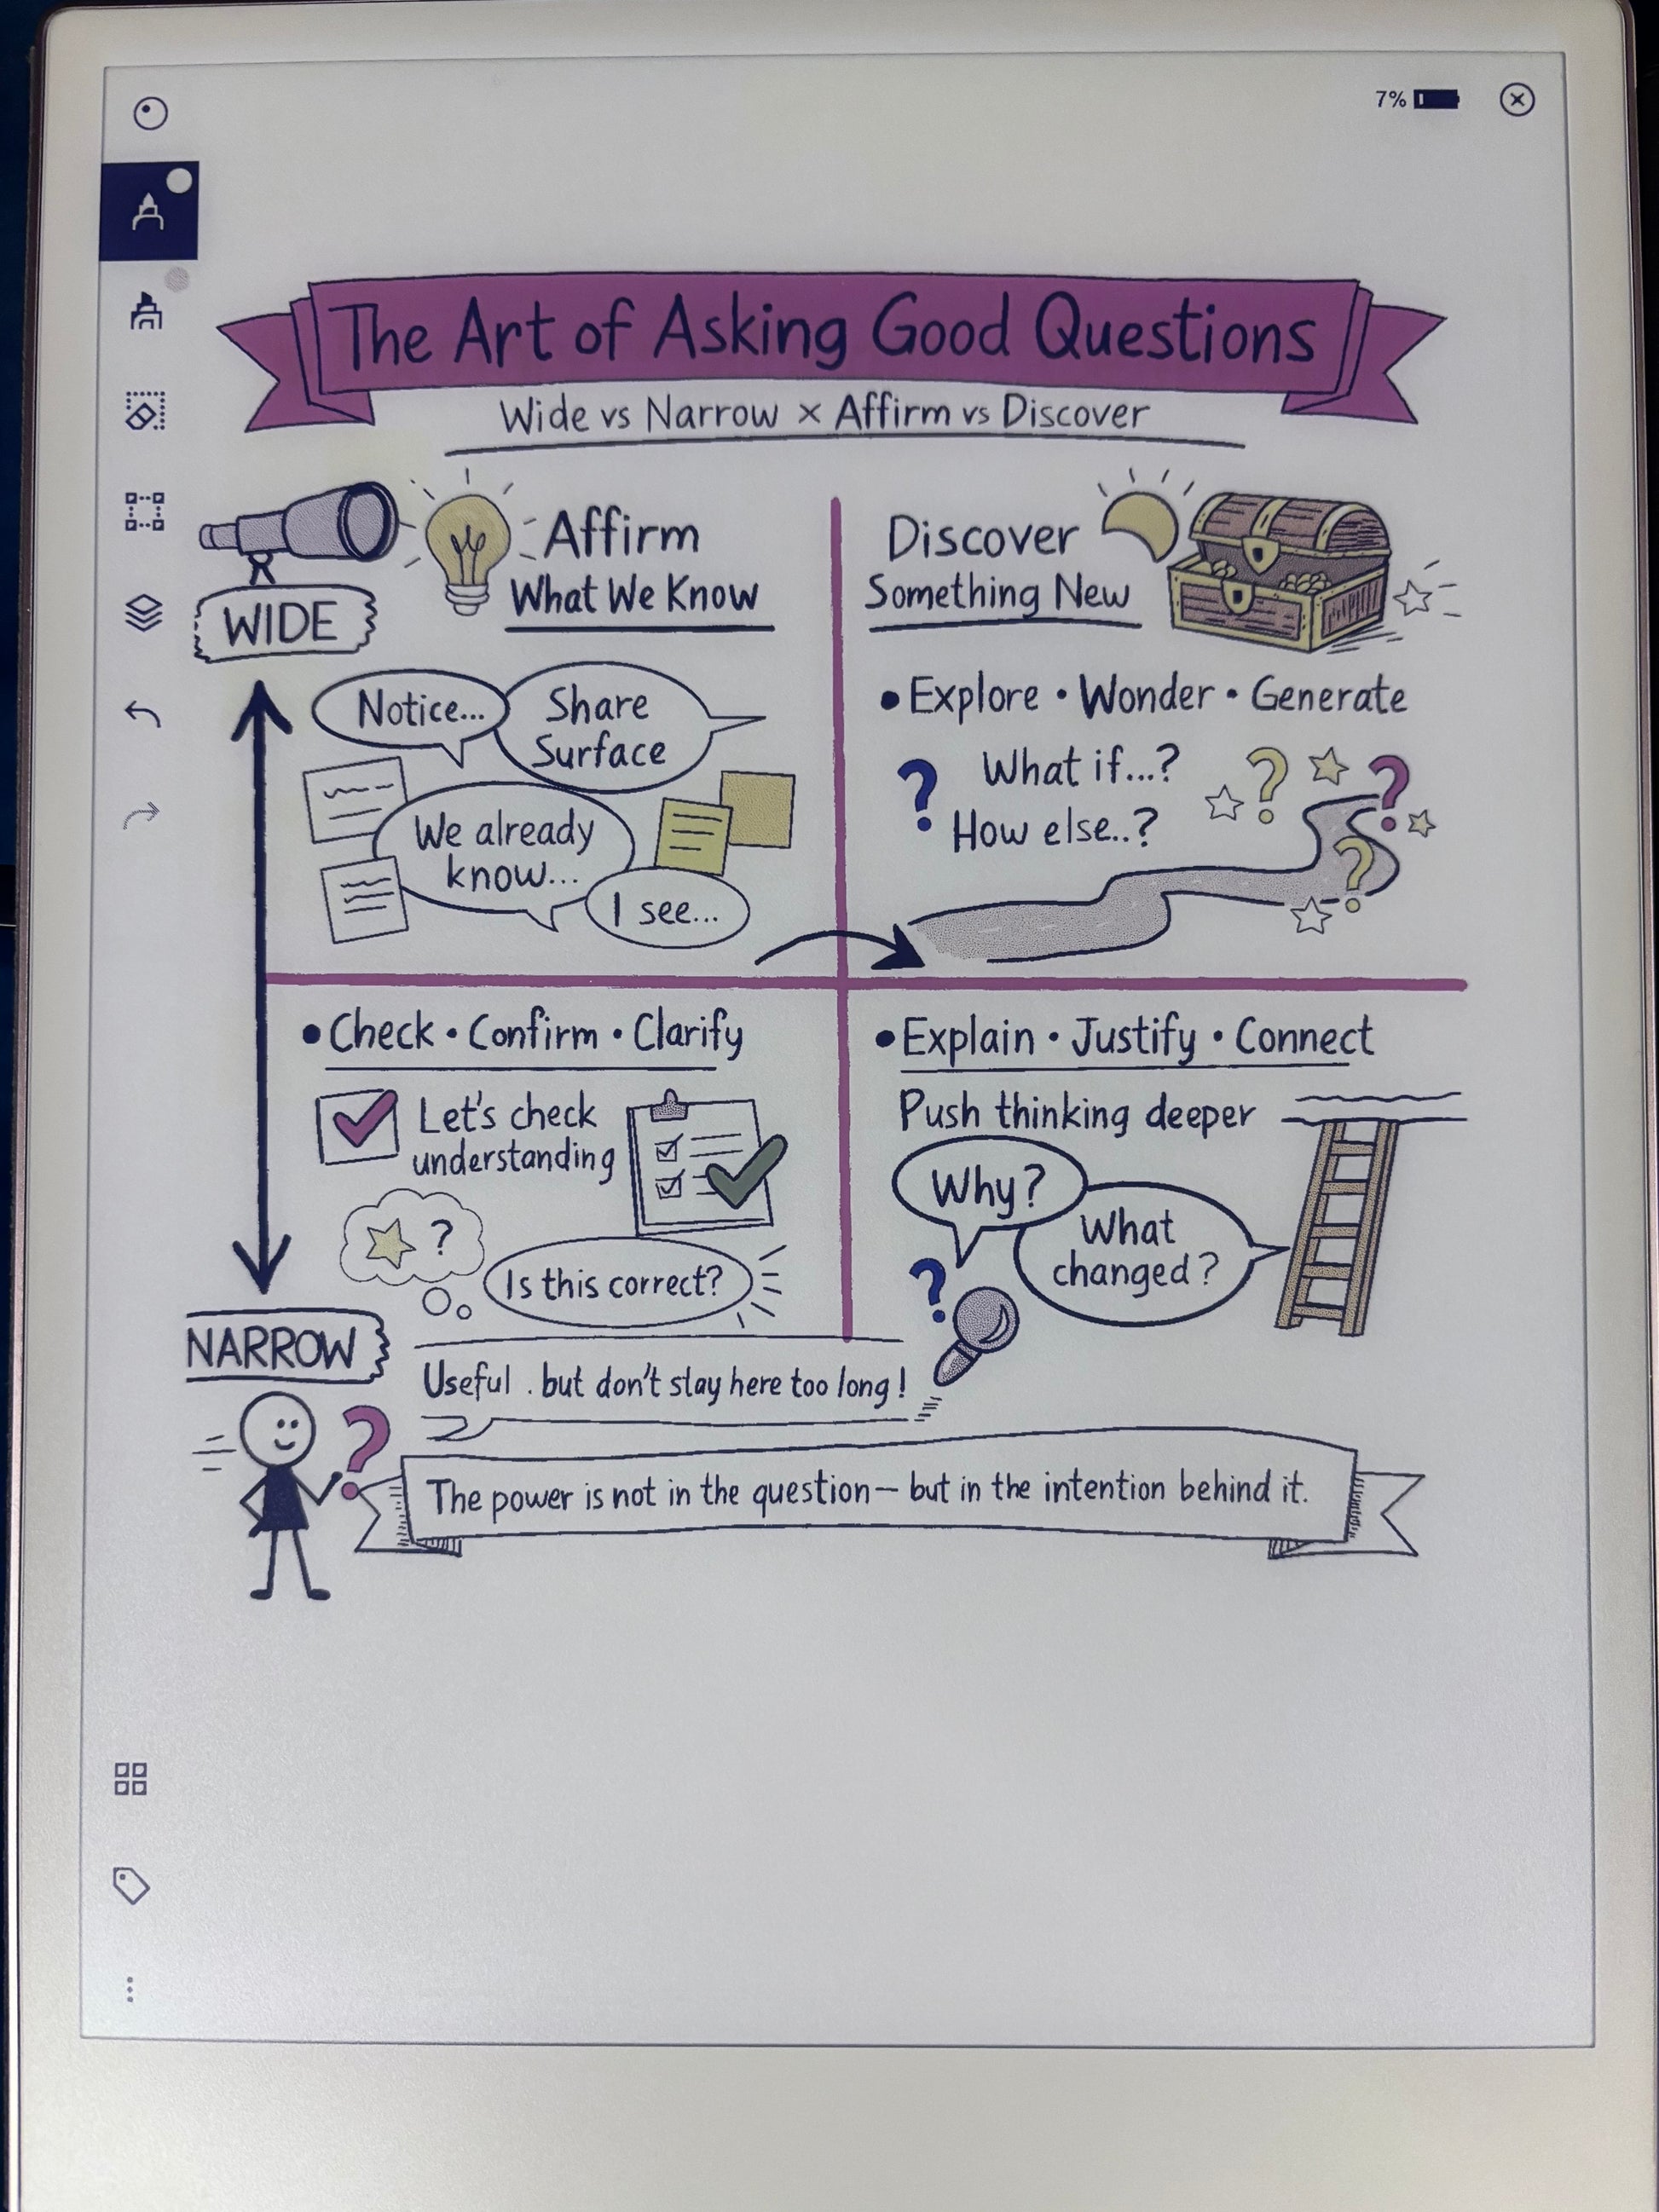 7%
The Art of Asking Good Questions
Wide vs Narrow × Affirm vs Discover
WIDE
Affirm
What We Know
Notice...
Share
Surface
We already
know...
I see...
Discover
Something New
•Explore • Wonder • Generate
? What if...?
How else..?
? ? ?
•Check • Confirm • Clarify
Let's check
understanding
?
Is this correct?
•Explain • Justify • Connect
Push thinking deeper
Why?
What
changed?
?
NARROW
Useful . but don't stay here too long!
?
The power is not in the question— but in the intention behind it.